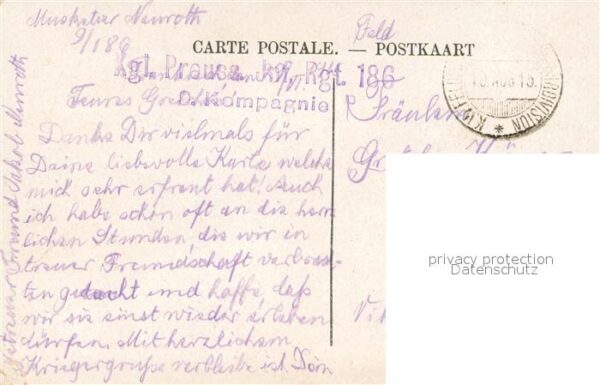 Musketier Neuroth
9/186
Feld
CARTE POSTALE. — POSTKAART
Kgl. Preuss. Inf. Rgt. 186
9. Kompagnie
Teures
Fräulein
Danke Dir vielmals für
Deine liebevolle Karte welche
mich sehr erfreut hat. Auch
ich habe schon oft an die herr-
lichen Stunden, die wir in
treuer Freundschaft verbrach-
ten gedacht und hoffe, daß
wir sie einst wieder erleben
dürfen. Mit herzlichem
Kriegergruße verbleibe ich Dein
getreuer Freund Jakob Neuroth
privacy protection
Datenschutz